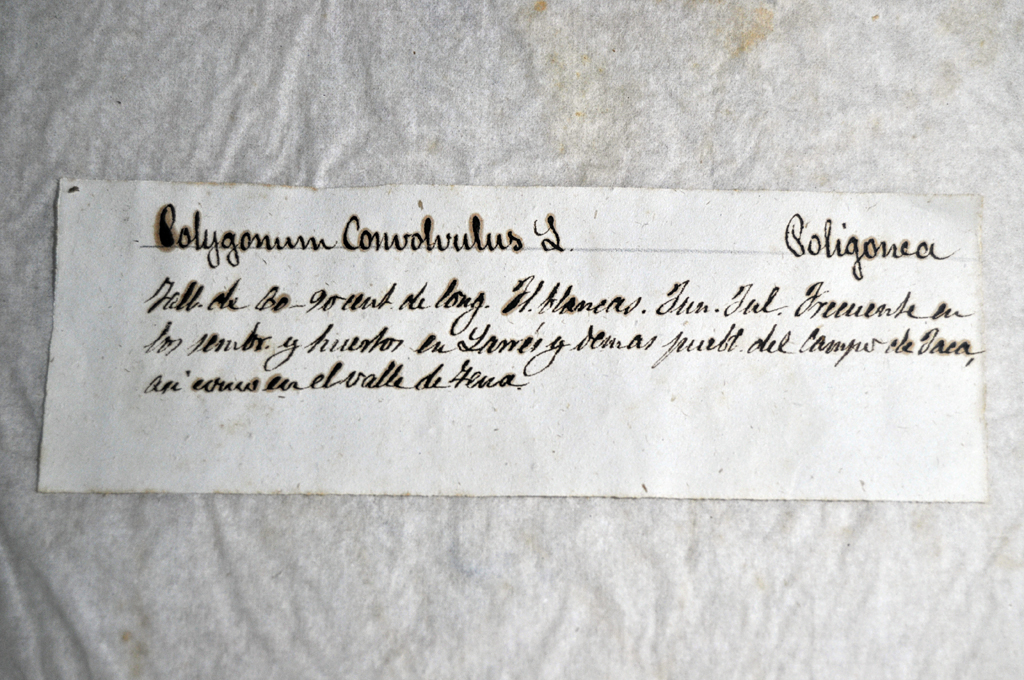 Polygonum Convolvulus L. Poligonea
Tall. de 60-90 cent. de long. Fl. blancas. Jun. Jul. Frecuente en
los sembr. y huertos en Larrés y demas puebl. del Campo de Jaca,
asi como en el valle de Tena.